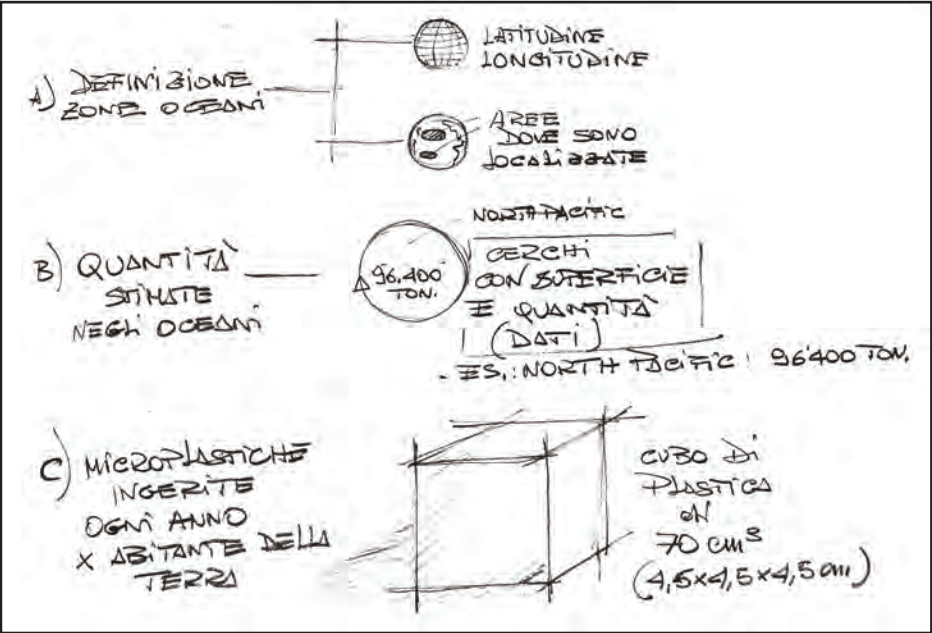 A) DEFINIZIONE
ZONE OCEANI
LATITUDINE
LONGITUDINE
AREE
DOVE SONO
LOCALIZZATE
B) QUANTITÀ
STIMATE
NEGLI OCEANI
96.400
TON.
NORTH PACIFIC
CERCHI
CON SUPERFICIE
E QUANTITÀ
(DATI)
- ES.: NORTH PACIFIC: 96'400 TON.
C) MICROPLASTICHE
INGERITE
OGNI ANNO
X ABITANTE DELLA
TERRA
CUBO DI
PLASTICA
DI
70 cm³
(4,5x4,5x4,5 cm)